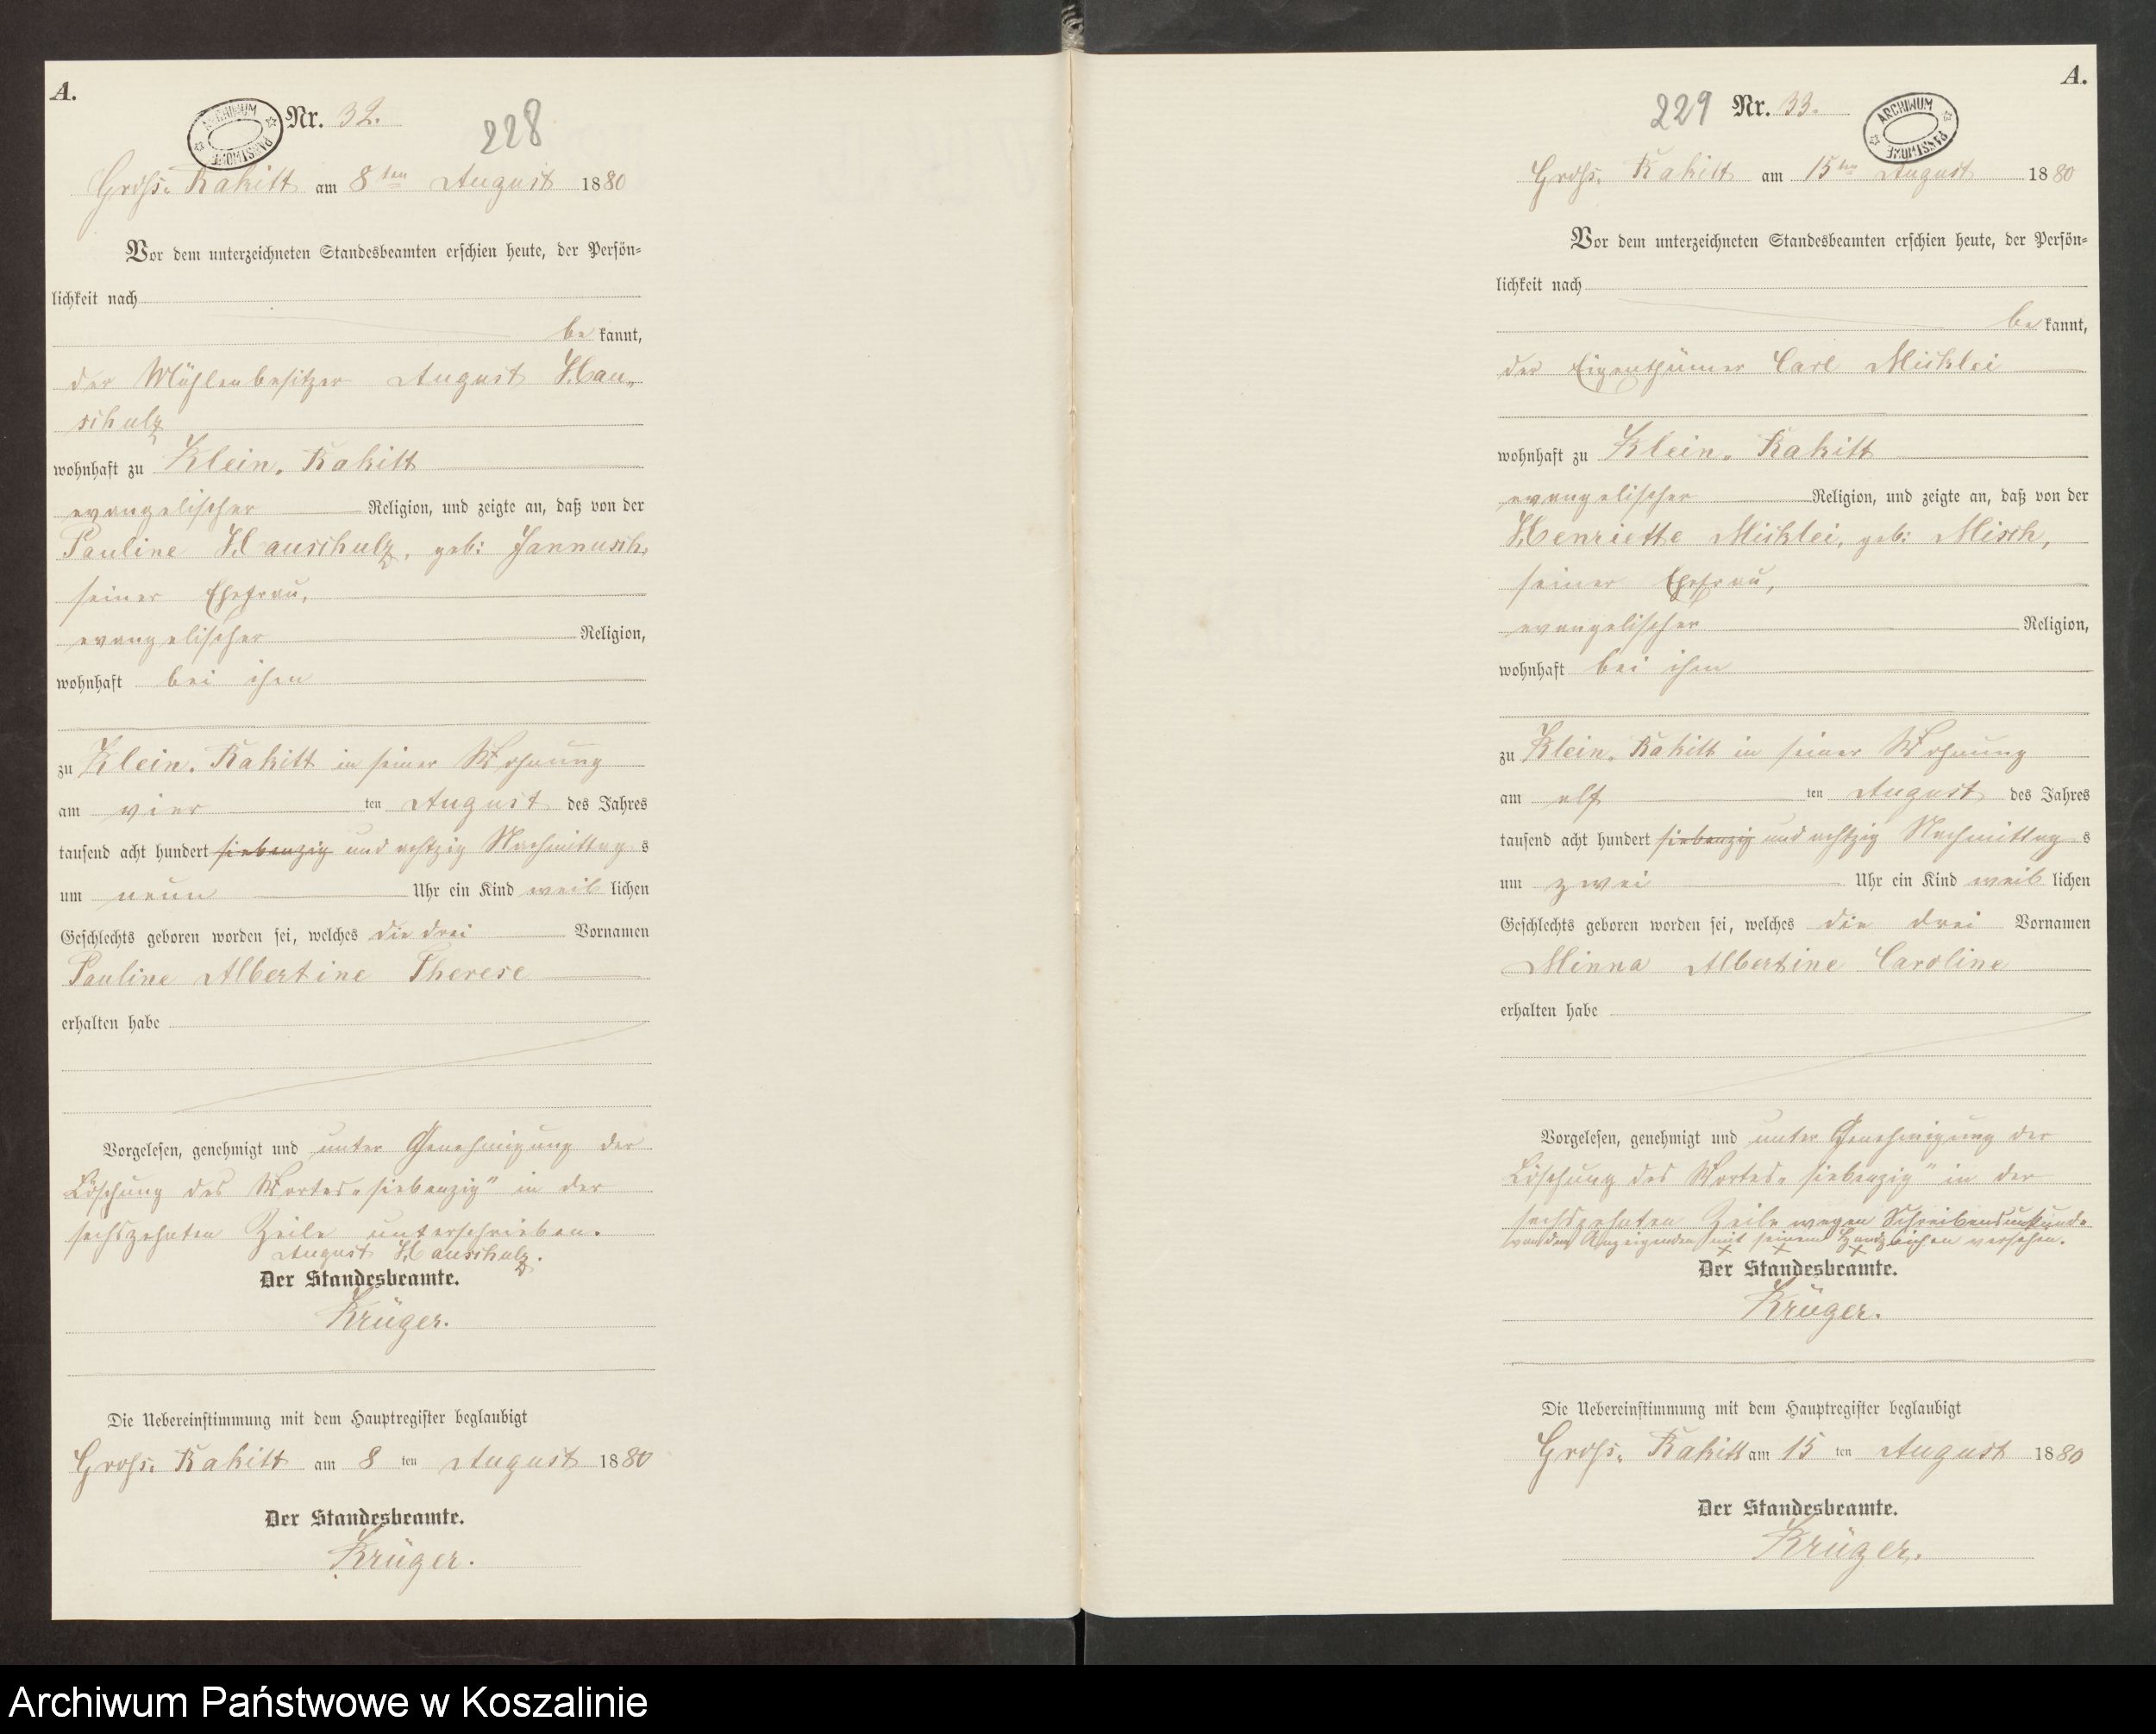 A.
ARCHIWUM PAŃSTWOWE
Nr. 32.
228
Groß-Rakitt am 8ten August 1880
Vor dem unterzeichneten Standesbeamten erschien heute, der Persön-
lichkeit nach
be kannt,
der Mühlenbesitzer August Hau-
schulz
wohnhaft zu Klein-Rakitt
evangelischer Religion, und zeigte an, daß von der
Pauline Hauschulz, geb: Jannusch,
seiner Ehefrau,
evangelischer Religion,
wohnhaft bei ihm
zu Klein-Rakitt in seiner Wohnung
am vier ten August des Jahres
tausend acht hundert siebenzig und achtzig Nachmittag s
um neun Uhr ein Kind weib lichen
Geschlechts geboren worden sei, welches die drei Vornamen
Pauline Albertine Therese
erhalten habe
Vorgelesen, genehmigt und unter Genehmigung der
Löschung des Wortes „siebenzig" in der
sechszehnten Zeile unterschrieben.
August Hauschulz.
Der Standesbeamte.
Krüger.
Die Uebereinstimmung mit dem Hauptregister beglaubigt
Groß-Rakitt am 8 ten August 1880
Der Standesbeamte.
Krüger.
A.
229
Nr. 33.
ARCHIWUM PAŃSTWOWE
Groß-Rakitt am 15ten August 1880
Vor dem unterzeichneten Standesbeamten erschien heute, der Persön-
lichkeit nach
be kannt,
der Eigenthümer Carl Micklei
wohnhaft zu Klein-Rakitt
evangelischer Religion, und zeigte an, daß von der
Henriette Micklei, geb: Misch,
seiner Ehefrau,
evangelischer Religion,
wohnhaft bei ihm
zu Klein-Rakitt in seiner Wohnung
am elf ten August des Jahres
tausend acht hundert siebenzig und achtzig Nachmittag s
um zwei Uhr ein Kind weib lichen
Geschlechts geboren worden sei, welches die drei Vornamen
Minna Albertine Caroline
erhalten habe
Vorgelesen, genehmigt und unter Genehmigung der
Löschung des Wortes „siebenzig" in der
sechszehnten Zeile wegen Schreibensunkunde
von dem Anzeigenden mit seinem Handzeichen versehen.
x x x
Der Standesbeamte.
Krüger.
Die Uebereinstimmung mit dem Hauptregister beglaubigt
Groß-Rakitt am 15 ten August 1880
Der Standesbeamte.
Krüger.
Archiwum Państwowe w Koszalinie